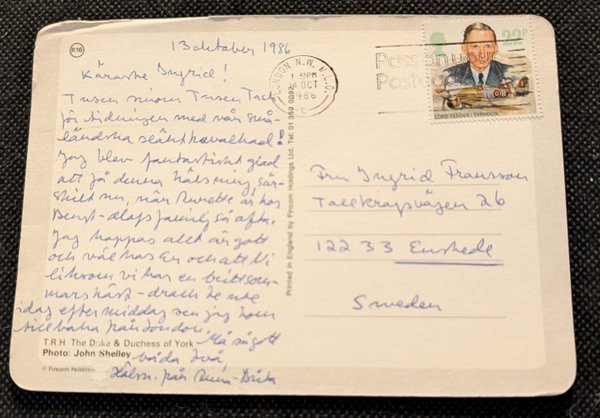 R16
13 oktober 1986
Käraste Ingrid!
Tusen sinom Tusen Tack
för tidningen med vår små-
ländska släktkavalkad!
Jag blev fantastiskt glad
att få denna hälsning, sär-
skilt nu, när Runette är hos
Bengt-Olofs familj så ofta.
Jag hoppas allt är gott
och väl hos Er och att Ni
liksom vi har en brittsom-
mars höst – drack te ute
idag eftermiddag sen jag kom
tillbaka från London.
Må så gott
båda två
från
T.R.H. The Duke & Duchess of York
Photo: John Shelley
© Fincom Holdings
Printed in England by Fincom Holdings Ltd. Tel: 01 350
LONDON N.W. M.L.O.
PM
OCT
1986
Pass on
Postcode
22P
LORD TEDDER / TYPHOON
Fru Ingrid Fransson
Tallkragsvägen 26
122 33 Enskede
Sweden